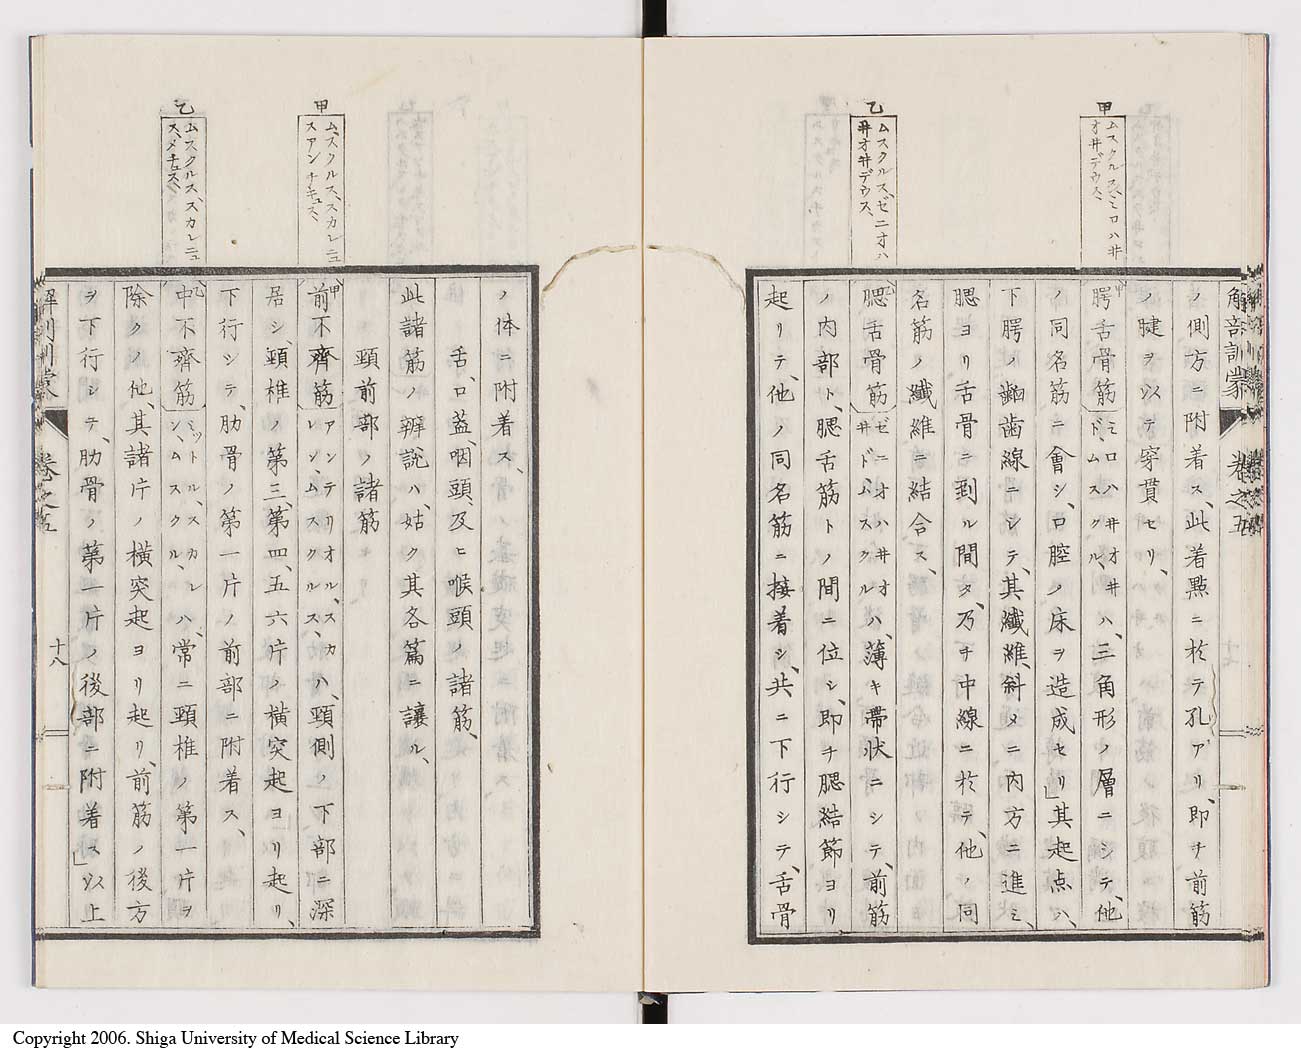 甲
ムスクルス、ミロハ井
オ井デウス、
乙
ムスクルス、ゼニオハ
井オ井デウス、
解剖訓蒙 卷之五
ノ側方ニ附着ス、此着點ニ於テ孔アリ、即チ前筋
ノ腱ヲ以テ穿貫セリ、
甲腭舌骨筋 ミロハ井オ井
ド、ムスクル、ハ、三角形ノ層ニシテ、他
ノ同名筋ニ會シ、口腔ノ床ヲ造成セリ」其起点ハ、
下腭ノ齒線ニシテ、其纖維、斜タニ內方ニ進ミ、
腮ヨリ舌骨ニ到ル間タ、乃チ中線ニ於テ、他ノ同
名筋ノ纖維ニ結合ス、
乙腮舌骨筋 ゼニオハ井オ
井ド、ムスクル ハ、薄キ帶狀ニシテ、前筋
ノ內部ト、腮舌筋トノ間ニ位シ、即チ腮結節ヨリ
起リテ、他ノ同名筋ニ接着シ、共ニ下行シテ、舌骨
甲
ムスクルス、スカレニュ
スアンチキュス、
乙
ムスクルス、スカレニュ
ス、メチュス、
ノ体ニ附着ス、
舌、口蓋、咽頭及ヒ喉頭ノ諸筋、
此諸筋ノ辨説ハ、姑ク其各篇ニ讓ル、
頸前部ノ諸筋
甲前不齊筋 アンテリオル、スカ
レン、ムスクルス、ハ、頸側ノ下部ニ深
居シ、頸椎ノ第三、第四、五六片ノ橫突起ヨリ起リ、
下行シテ、肋骨ノ第一片ノ前部ニ附着ス、
乙中不齊筋 ミットル、スカレ
ン、ムスクル、ハ、常ニ頸椎ノ第一片ヲ
除クノ他、其諸片ノ橫突起ヨリ起リ、前筋ノ後方
ヲ下行シテ、肋骨ノ第一片ノ後部ニ附着ス」以上
卷之五
十八
Copyright 2006. Shiga University of Medical Science Library